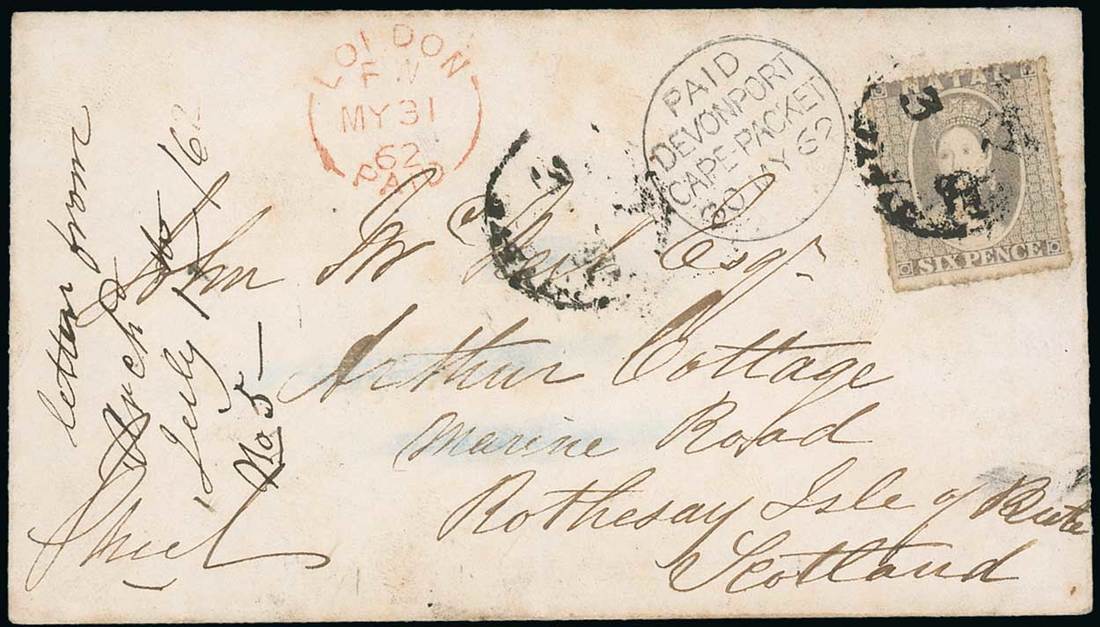 LONDON
F W
MY 31
62
PAID
PAID
DEVONPORT
CAPE-PACKET
30 MY 62
NATAL
SIX PENCE
John Esqr
Arthur Cottage
Marine Road
Rothesay Isle of Bute
Scotland
letter from
July 1/62
No 5 —